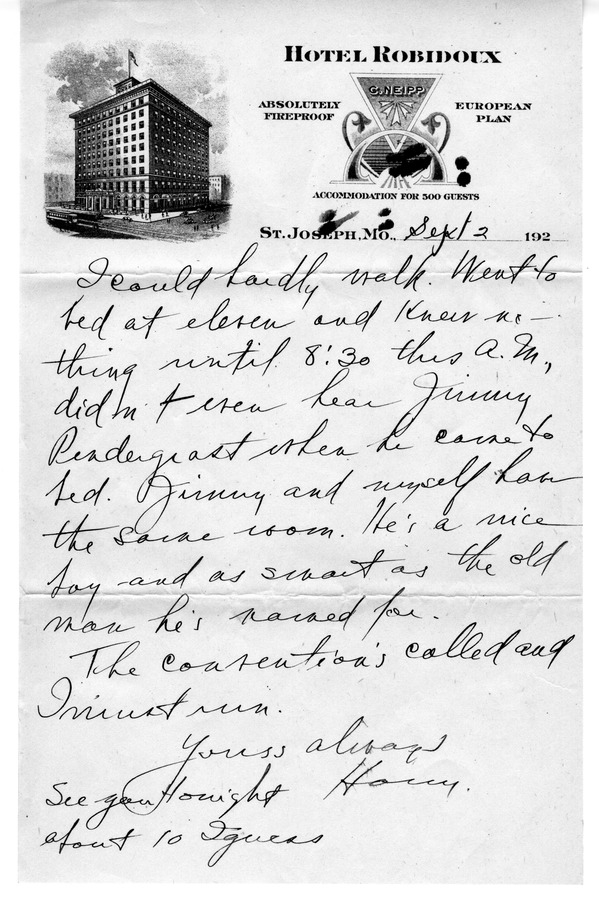 HOTEL ROBIDOUX
C. NEIPP
ABSOLUTELY FIREPROOF
EUROPEAN PLAN
ACCOMMODATION FOR 500 GUESTS
ST. JOSEPH, MO., Sept 2 192
I could hardly walk. Went to
bed at eleven and knew no-
thing until 8:30 this A.M.,
didn't even hear Jimmy
Pendergast when he came to
bed. Jimmy and myself have
the same room. He's a nice
boy and as smart as the old
man he's named for.
The convention's called and
I must run.
Yours always
Harry.
See you tonight
about 10 I guess